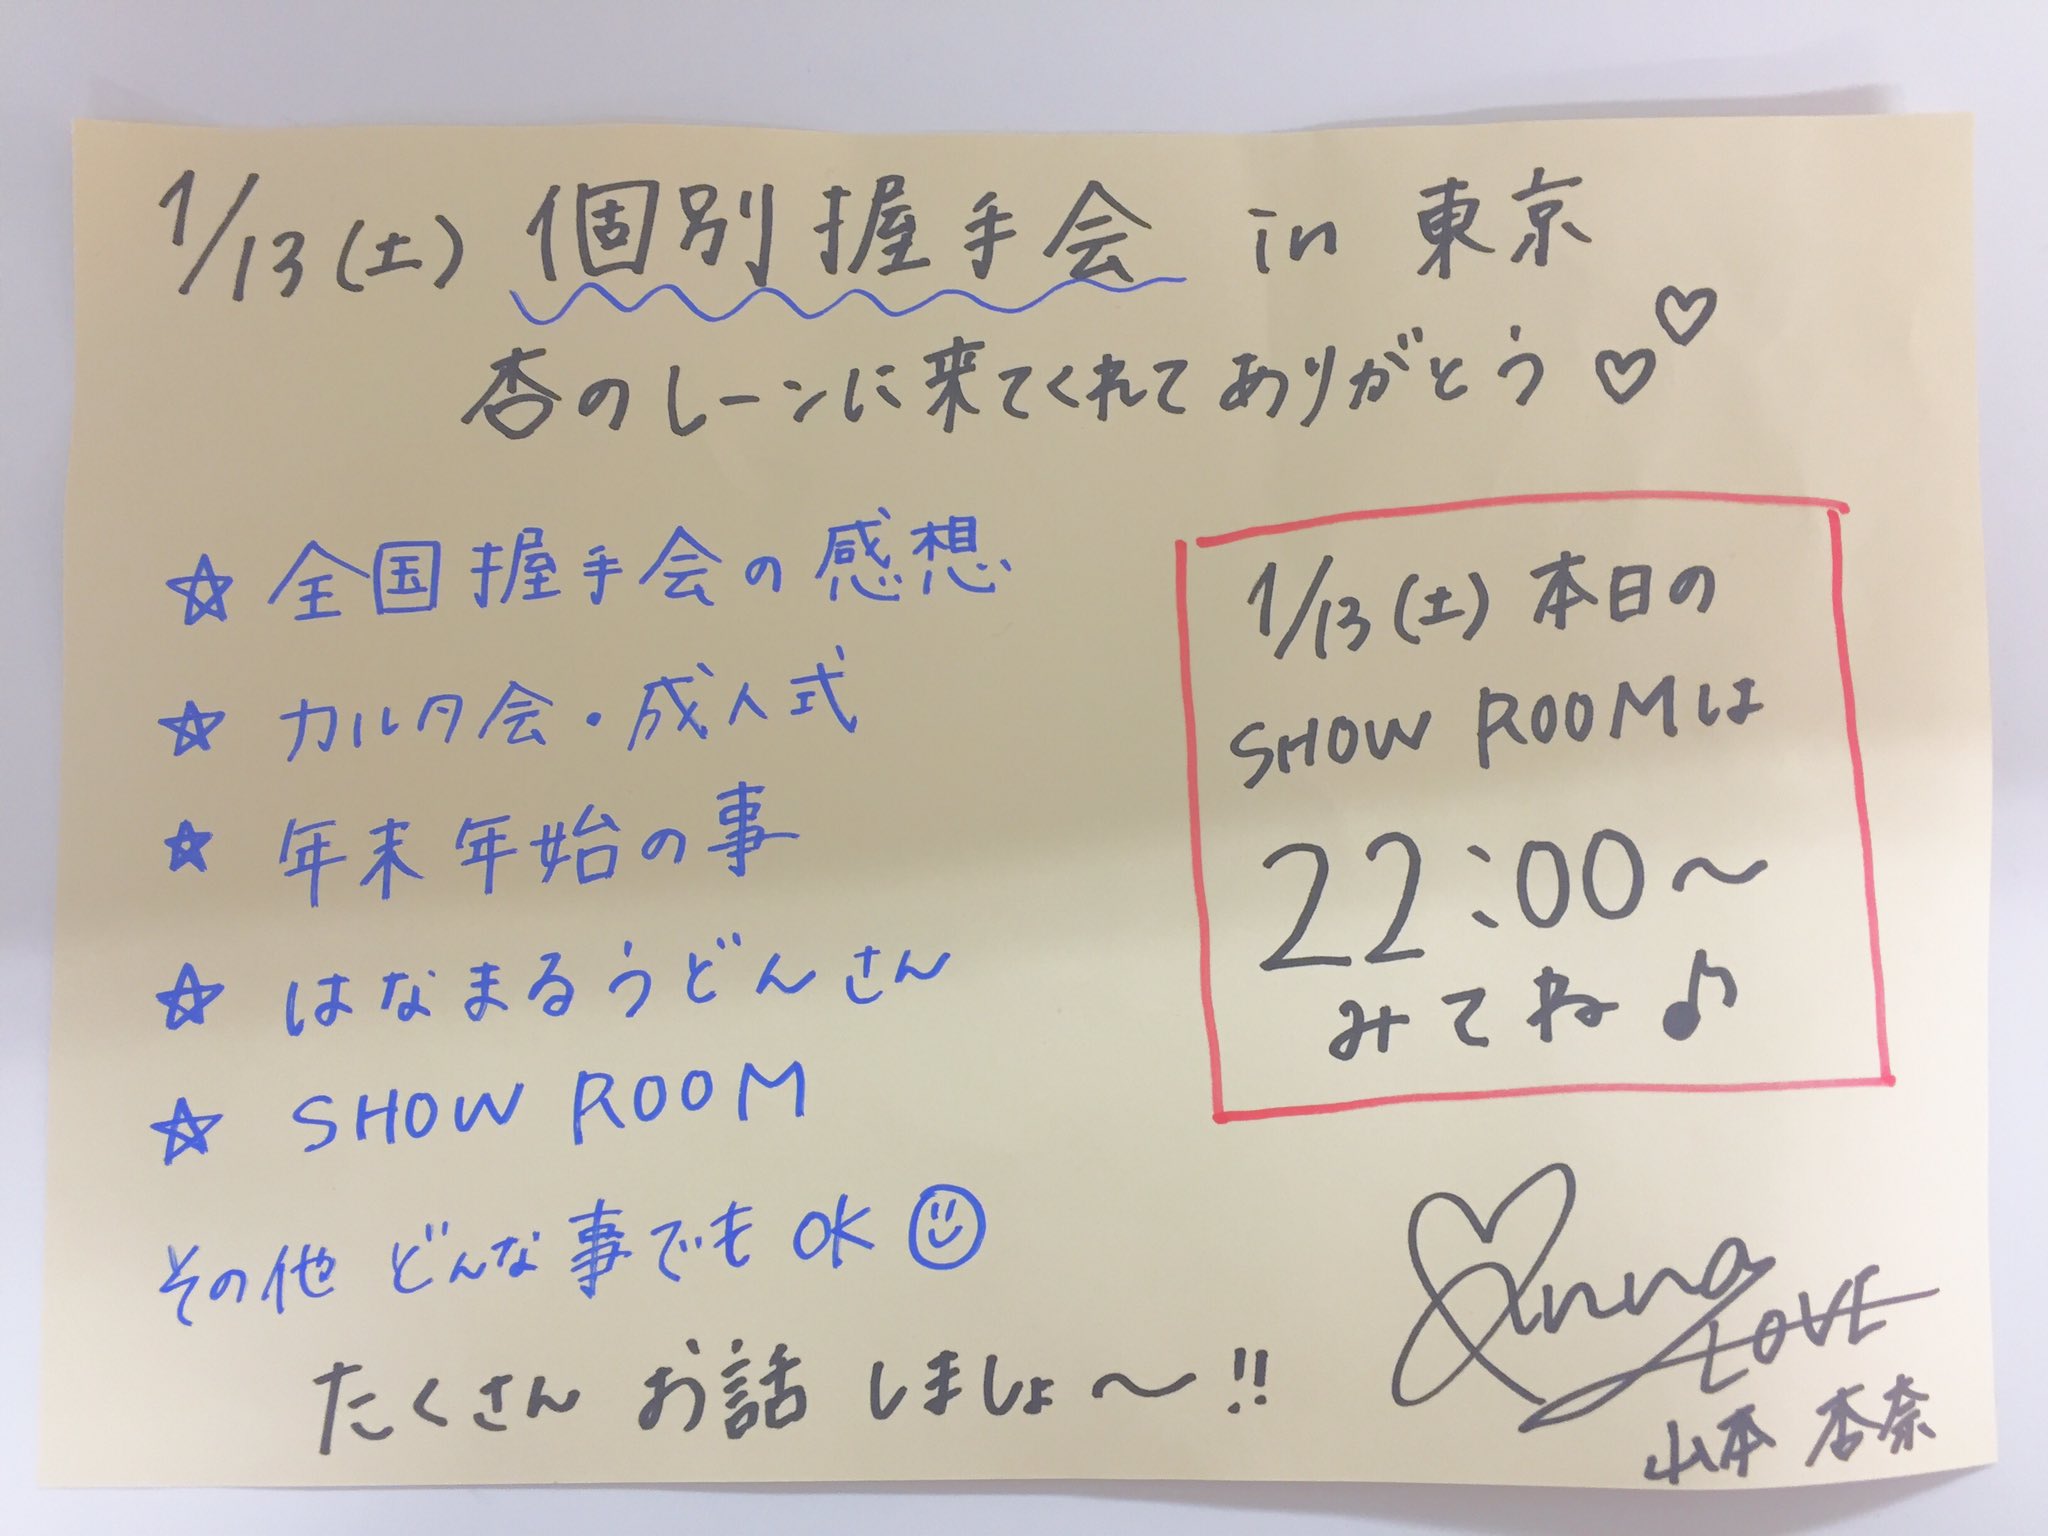 1/13(土) 個別握手会 in 東京
杏のレーンに来てくれてありがとう♡♡
☆ 全国握手会の感想
☆ カルタ会・成人式
☆ 年末年始の事
☆ はなまるうどんさん
☆ SHOW ROOM
その他 どんな事でもOK
たくさん お話 しましょ〜!!
1/13(土) 本日の
SHOW ROOMは
22:00〜
みてね♪
Anna
LOVE
山本 杏奈